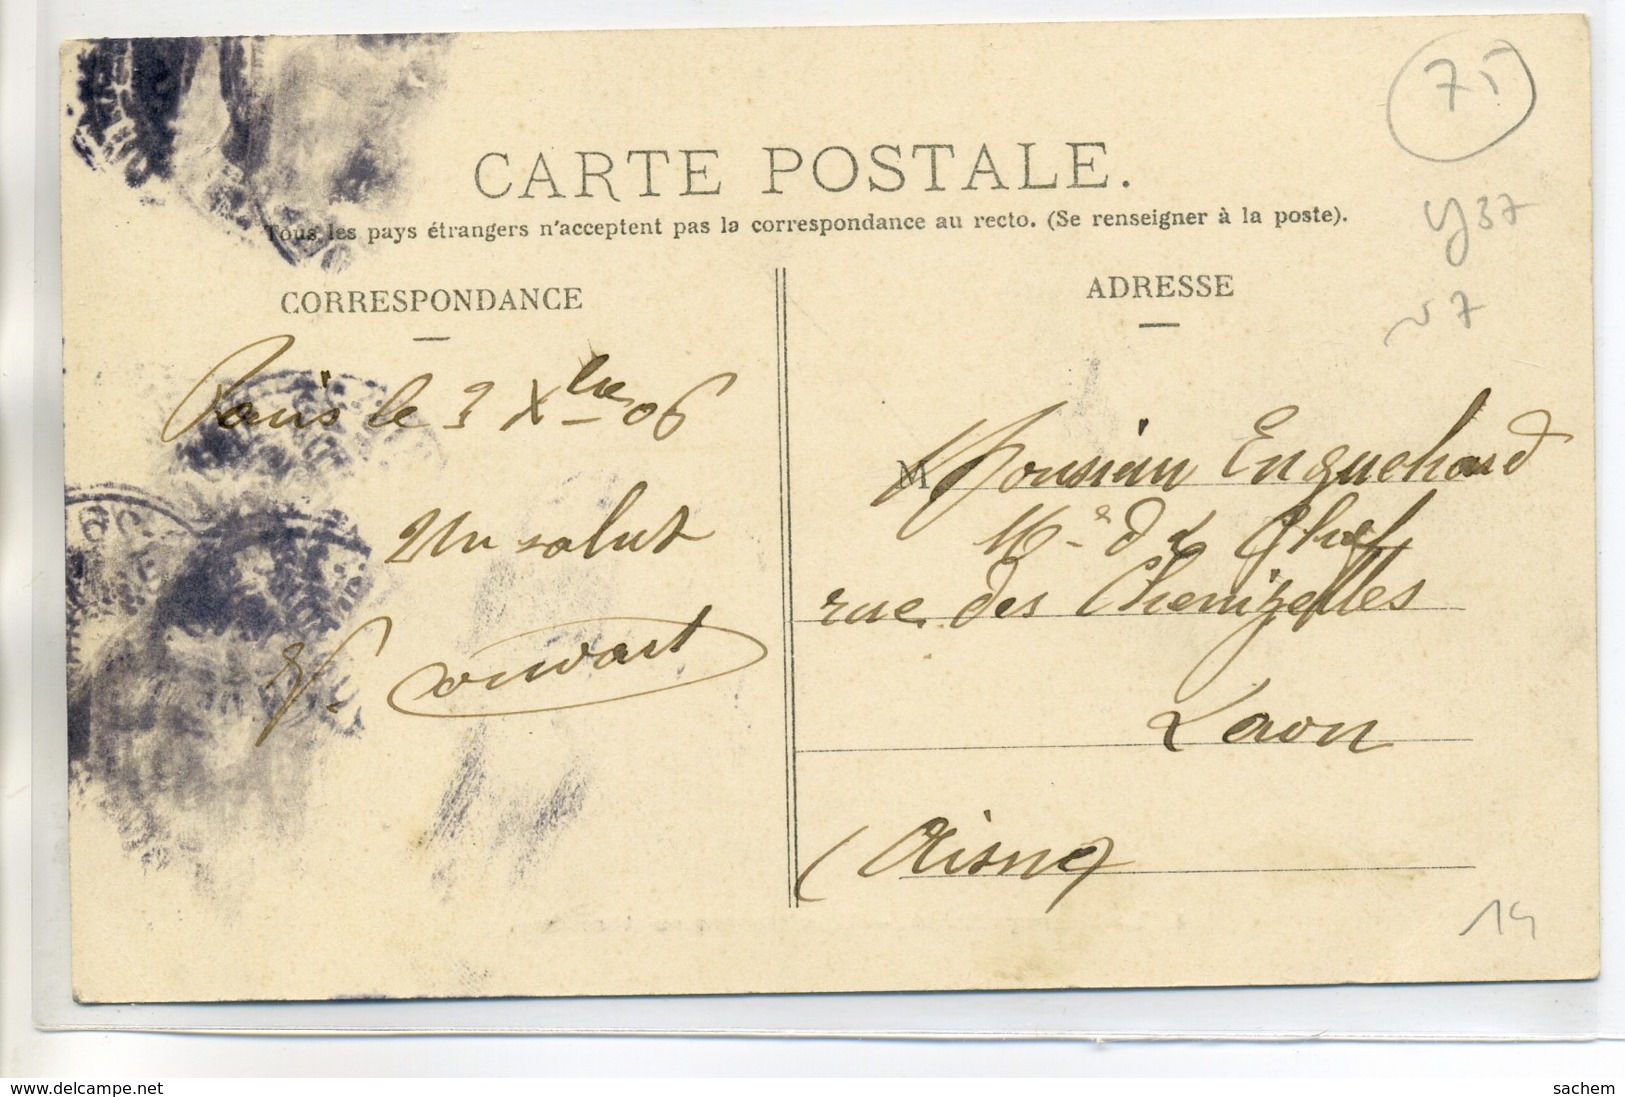 75
CARTE POSTALE.
Tous les pays étrangers n'acceptent pas la correspondance au recto. (Se renseigner à la poste).
y 37
v 7
CORRESPONDANCE
Paris le 3 Xbre 06
Un salut
ADRESSE
M Monsieur Enguehard
Mis d Chef
rue des Chenizelles
Laon
(Aisne)
14
www.delcampe.net
sachem